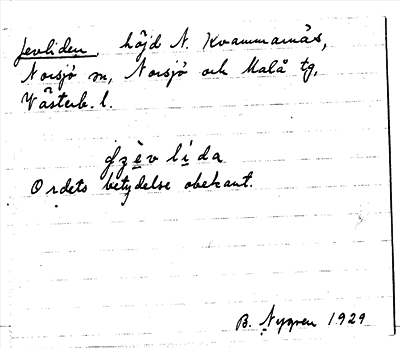 Jevliden, höjd N. Kvammarnäs,
Norsjö sn, Norsjö och Malå tg,
Västerb. l.
ɟzèv lí da
Ordets betydelse obekant.
B. Nygren 1929